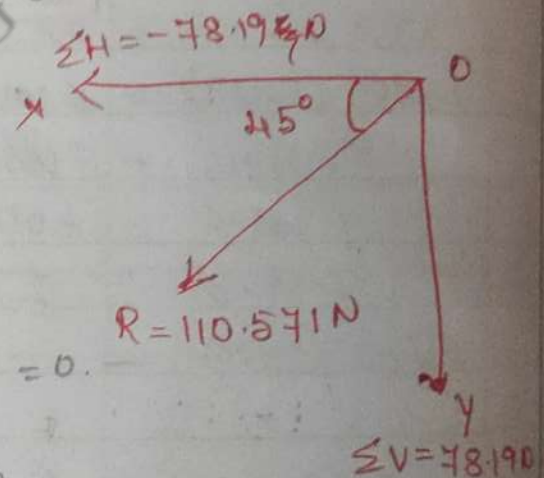 ΣH = -78.19 N
O
X
45°
R = 110.571 N
= 0.
Y
ΣV = 78.19 N